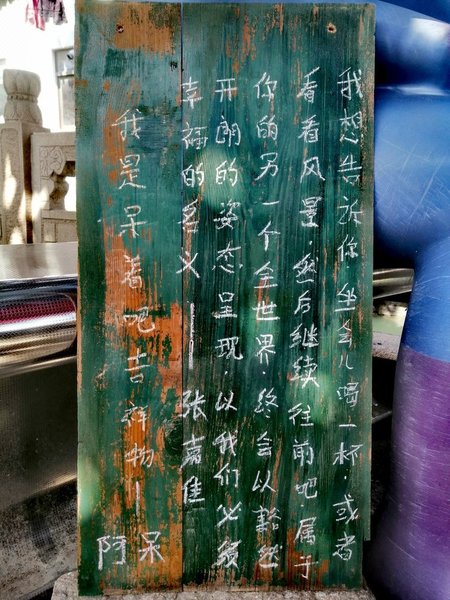 我想告诉你坐会儿喝一杯．或者
看看风景．然后继续往前吧．属于
你的另一个全世界．终会以豁然
开朗的姿态呈现．以我们必须
幸福的名义——张嘉佳
我是呆着吧吉祥物—阿呆